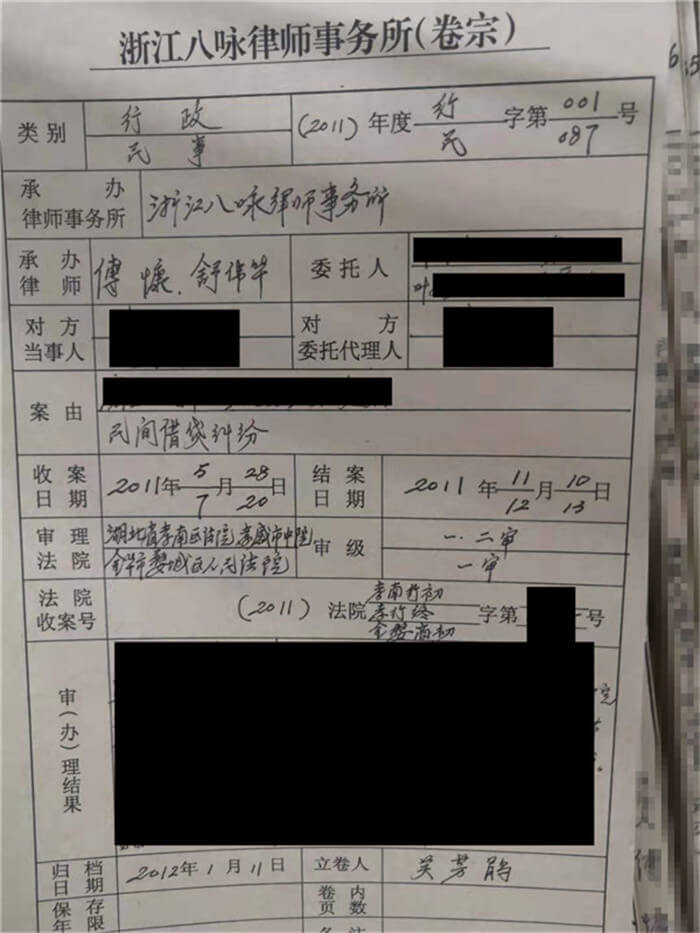 浙江八咏律师事务所（卷宗）
类别 行政 (2011) 年度 行 字第 001 号
民事 民 087
承办律师事务所 浙江八咏律师事务所
承办律师 傅慷、舒伟华 委托人
叶
对方当事人 对方委托代理人
案由
民间借贷纠纷
收案日期 2011年 5 月 28 日 结案日期 2011 年 11 月 10 日
7 20 12 13
审理法院 湖北省孝南区法院 孝感市中院 审级 一.二审
金华市婺城区人民法院 一审
法院收案号 (2011) 法院 孝南行初 字第 号
孝行终
金婺商初
审(办)理结果
院
归档日期 2012年1月11日 立卷人 吴芳鹃
保存年限 卷内页数